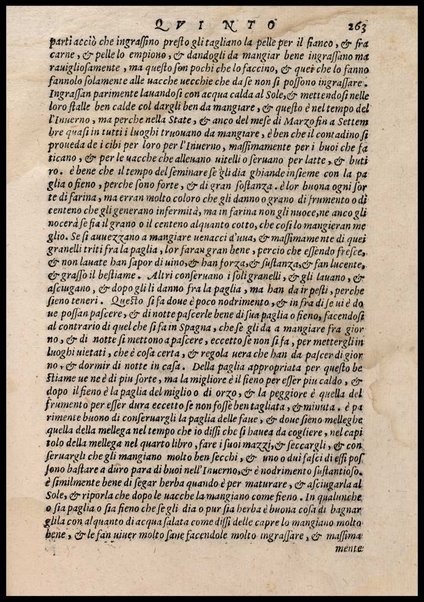 QVINTO 263
parti acciò che ingrassino presto gli tagliano la pelle per il fianco, & fra
carne, & pelle lo empiono, & dandogli da mangiar bene ingrassano ma
rauigliosamente, ma questo son pochi che lo faccino, & quei che lo fanno
fannolo solamente alle uacche uecchie che da se non si possono ingrassare.
Ingrassan parimente lauandosi con acqua calda al Sole, & mettendosi nelle
loro stalle ben calde col dargli ben da mangiare, & questo è nel tempo del
l'Inuerno, ma perche nella State, & anco del mese di Marzo fin a Settem
bre quasi in tutti i luoghi truouano da mangiare, è ben che il contadino si
proueda de i cibi per loro per l'Inuerno, massimamente per i buoi che fa
ticano, & per le uacche che alleuano uitelli o seruano per latte, & buti
ro. è bene che il tempo del seminare se gli dia ghiande insieme con la pa
glia o fieno, perche sono forte, & di gran sostanza. è lor buona ogni sor
te di farina, ma erran molto coloro che gli danno o grano di frumento o di
centeno che gli generano infermità, ma in farina non gli nuoce, ne anco gli
nocerà se fia il grano o il centeno alquanto cotto, che così lo mangieran me
glio. Se si auuezzano a mangiare uenacci d'uua, & massimamente di quei
granelli triti fra la paglia, lor faran gran bene, percio che essendo fresce,
& non lauate han sapor di uino, & han forza, & sustanza, & fan lucente,
& grasso il bestiame. Altri conseruano i soli granelli, & gli lauano, &
asciugano, & dopo gli li danno fra la paglia, ma han da ir pesti, perche
sieno teneri. Questo si fa doue è poco nodrimento, & in fra di se ui è do
ue possan pascere, & di notte pascerle bene di sua paglia o fieno, facendosi
al contrario di quel che si fa in Spagna, che se gli da a mangiare fra gior
no, & di notte si mettono a pascere, eccetto se non si fa, per mettergli in
luoghi uietati, che è cosa certa, & regola uera che han da pascer di gior
no, & dormir di notte in casa. Della paglia appropriata per questo be
stiame ue ne è di piu sorte, ma la migliore è il fieno per esser piu caldo, &
dopo il fieno è la paglia del miglio o di orzo, & la peggiore è quella del
frumento per esser dura eccetto se non fosse ben tagliata, & minuta. è pa
rimente buono di conseruargli la paglia delle faue, & doue sieno melleghe
quella della mellega nel tempo che io dissi che si hauea da cogliere, nel capi
tolo della mellega nel quarto libro, fare i suoi mazzi, & seccargli, & con
seruargli che gli mangiano molto ben secchi, & uno o dui fasci di essi pos
sono bastare a duro para di buoi nell'Inuerno, & è nodrimento sustantioso.
è similmente bene di segar herba quando è per maturare, & asciugarla al
Sole, & riporla che dopo le uacche la mangiano come fieno. In qualunche
o sia paglia o sia fieno che se gli dia o pur sia herba è buona cosa di bagnar
glila con alquanto di acqua salata come dissi delle capre lo mangiano molto
bene, & le fan uiuer molto sane facendole molto ingrassare, & massima
mente